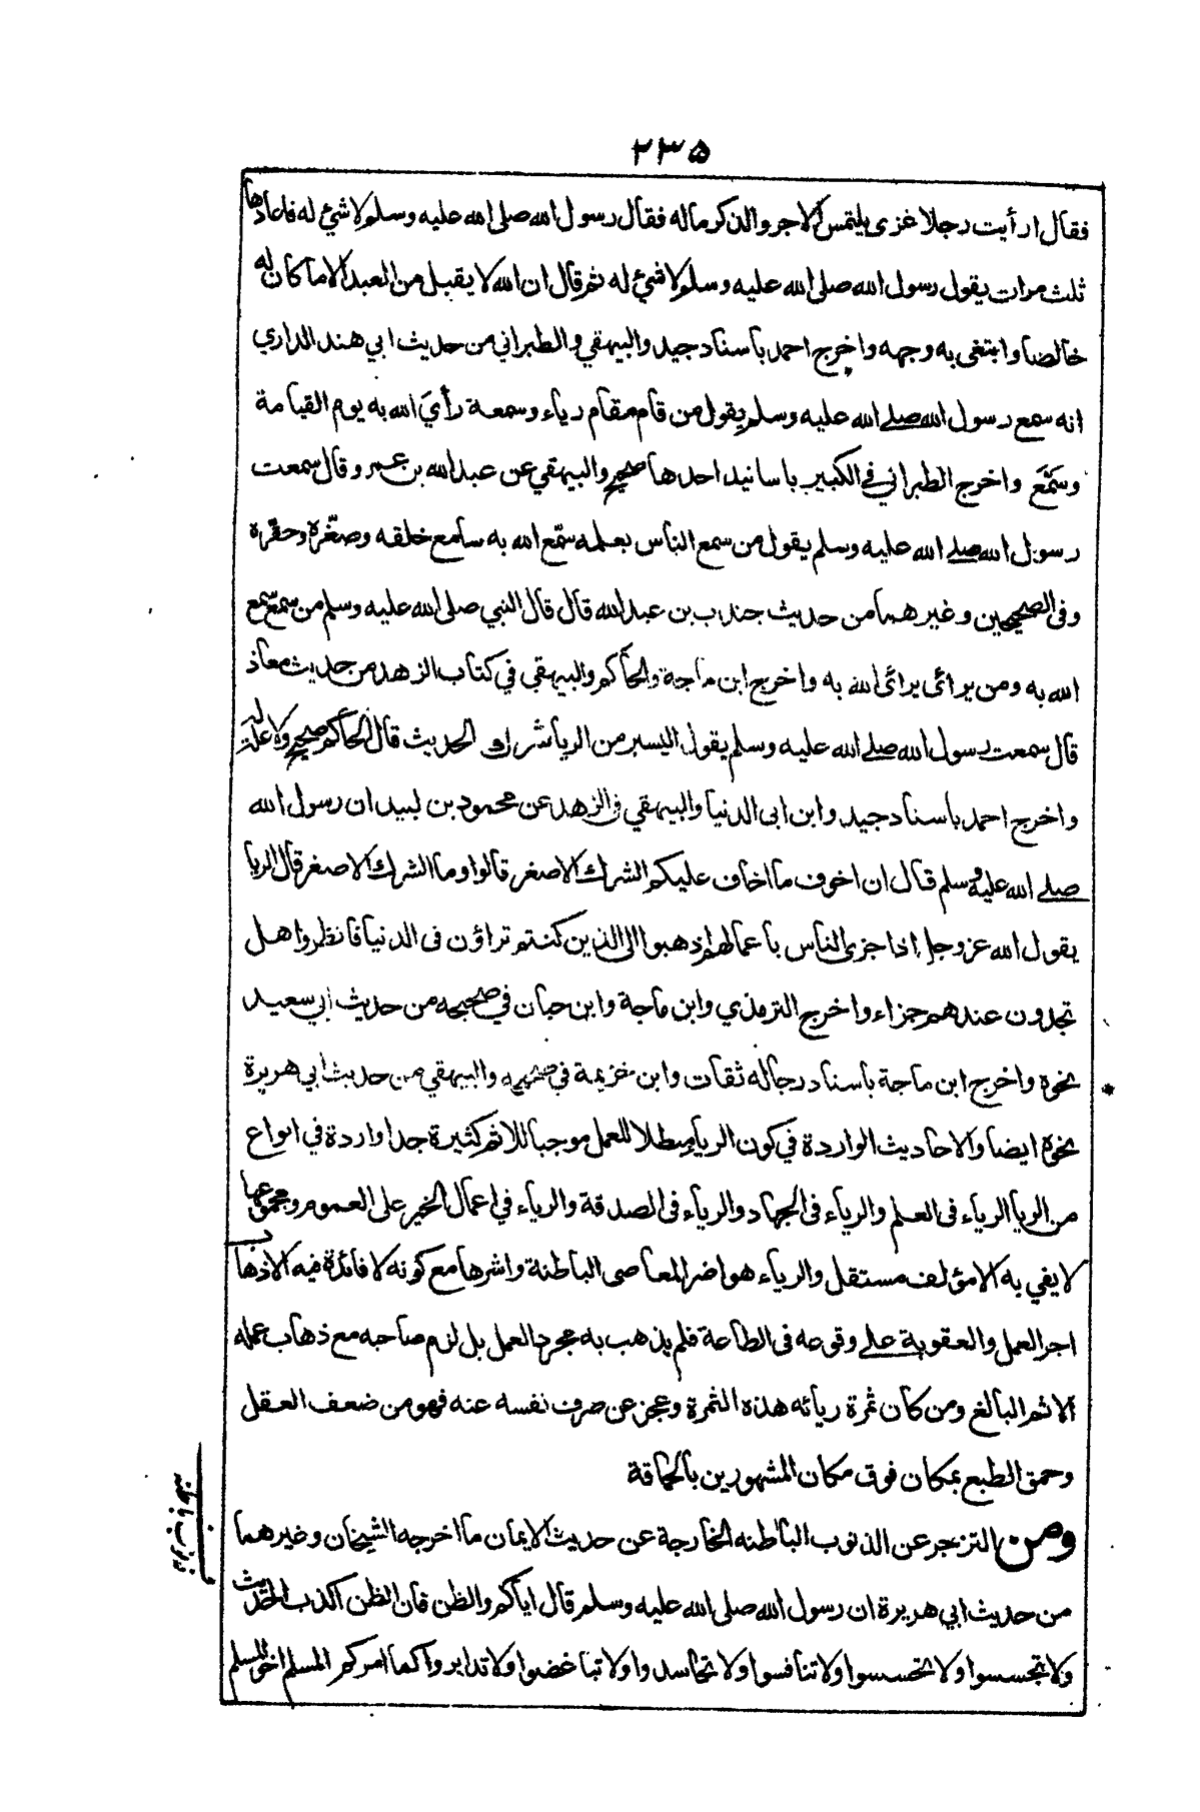 ٢٣٥
فقال ارأيت رجلا غزى يلتمس الاجر والذكر ماله فقال رسول الله صلى الله عليه وسلم لا شيء له فاعادها
ثلث مرات يقول رسول الله صلى الله عليه وسلم لا شيء له ثم قال ان الله لا يقبل من العبد الا ما كان له
خالصا وابتغى به وجهه واخرج احمد باسناد جيد والبيهقي والطبراني من حديث ابي هند الداري
انه سمع رسول الله صلى الله عليه وسلم يقول من قام مقام رياء وسمعة رأيَ الله به يوم القيامة
وسَمَّعَ واخرج الطبراني في الكبير باسانيد احدها صحيح والبيهقي عن عبد الله بن عمرو قال سمعت
رسول الله صلى الله عليه وسلم يقول من سمع الناس بعمله سمّع الله به سامع خلقه وصغّره وحقّره
وفى الصحيحين وغيرهما من حديث جندب بن عبد الله قال قال النبي صلى الله عليه وسلم من سمع سمع
الله به ومن يرائى يرائى الله به واخرج ابن ماجة والحاكم والبيهقي في كتاب الزهد من حديث معاذ
قال سمعت رسول الله صلى الله عليه وسلم يقول اليسير من الريا شرك الحديث قال الحاكم صحيح ولا علة له
واخرج احمد باسناد جيد وابن ابى الدنيا والبيهقي فى الزهد عن محمود بن لبيد ان رسول الله
صلى الله عليه وسلم قال ان اخوف ما اخاف عليكم الشرك الاصغر قالوا وما الشرك الاصغر قال الريا
يقول الله عز وجل اذا جزى الناس باعمالهم اذهبوا الى الذين كنتم تراؤن فى الدنيا فانظروا هل
تجدون عندهم جزاء واخرج الترمذي وابن ماجة وابن حبان في صحيحه من حديث ابي سعيد
نحوه واخرج ابن ماجة باسناد رجاله ثقات وابن خزيمة في صحيحه والبيهقي من حديث ابي هريرة
نحوه ايضا والاحاديث الواردة في كون الريا مبطلا للعمل موجبا للاثم كثيرة جدا واردة في انواع
من الريا الرياء فى العلم والرياء فى الجهاد والرياء فى الصدقة والرياء في اعمال الخير على العموم ومجموعها
لا يفي به الا مؤلف مستقل والرياء هو اضر المعاصى الباطنة واشرها مع كونه لا فائدة فيه الا ذهاب
اجر العمل والعقوبة على وقوعه فى الطاعة فلم يذهب به مجرد العمل بل لزم صاحبه مع ذهاب عمله
الاثم البالغ ومن كان ثمرة ريائه هذه الثمرة وعجز عن صرف نفسه عنه فهو من ضعف العقل
وحمق الطبع بمكان فوق مكان المشهورين بالحماقة
ومن التزجر عن الذنوب الباطنه الخارجة عن حديث الايمان ما اخرجه الشيخان وغيرهما
من حديث ابي هريرة ان رسول الله صلى الله عليه وسلم قال اياكم والظن فان الظن اكذب الحديث
ولا تجسسوا ولا تحسسوا ولا تنافسوا ولا تحاسدوا ولا تباغضوا ولا تدابروا كما امركم المسلم اخو المسلم